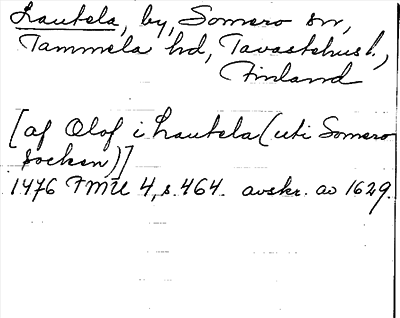 Lautela, by, Somero sn,
Tammela hd, Tavastehus l.,
Finland
[af Olof i Lautela (uti Somero
socken)]
1476 FMU 4, s. 464. avskr. av 1629.